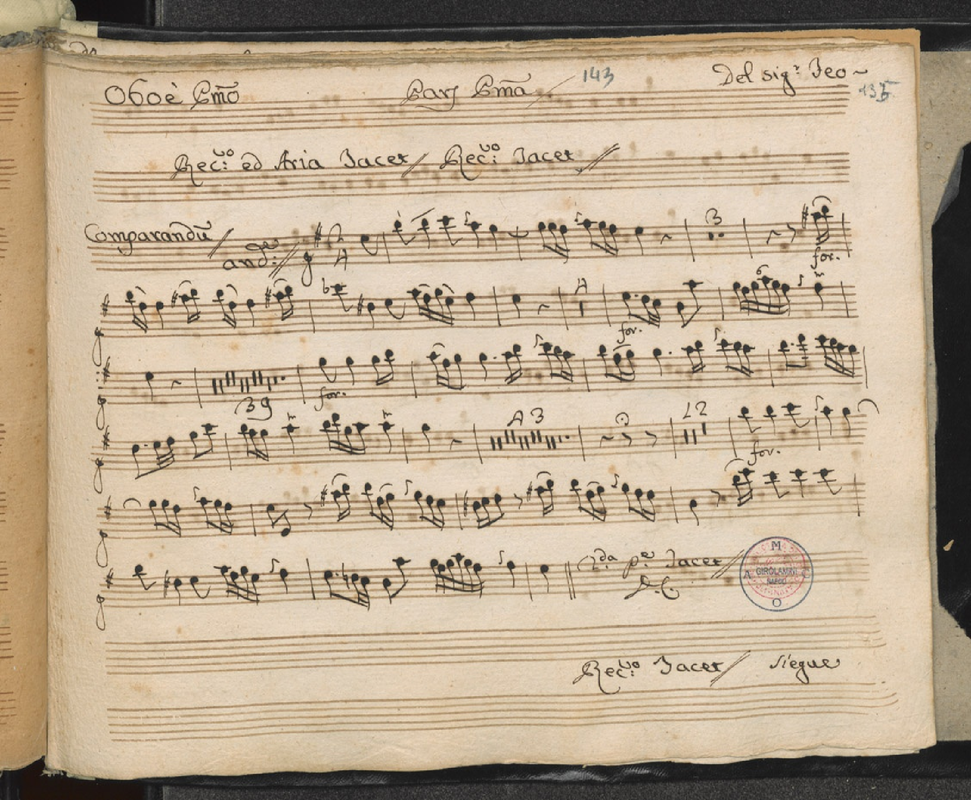 Oboè Pmõ Pars Pmã 143 Del sig.r Teo~
135
Rec:vo ed Aria Tacet Rec:vo Tacet
Comparandũ
and.e 3
for.
for.
39 for.
A 3 12
for.
2da p.e Tacet
D.C
M
GIROLAMINI
O
Rec:vo Tacet Siegue